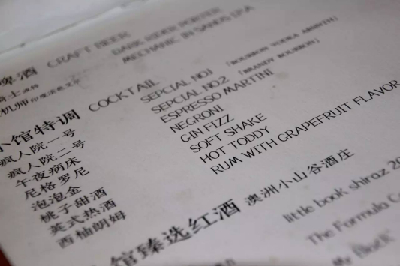 啤酒 CRAFT BEER
DARK RIDER PORTER
MECHANIC IN SANDS GYA
小馆特调 COCKTAIL
疯人院一号 SEPCIAL NO1 (BOURBON VODKA AMARETTI)
疯人院二号 SEPCIAL NO2 (BRANDY BOURBON)
午夜病床 ESPRESSO MARTINI
尼格罗尼 NEGRONI
泡泡金 GIN FIZZ
桃子甜酒 SOFT SHAKE
英式热酒 HOT TODDY
西柚朗姆 RUM WITH GRAPEFRUIT FLAVOR
馆臻选红酒 澳洲小山谷酒庄
little book shiraz 20
The Formula Co